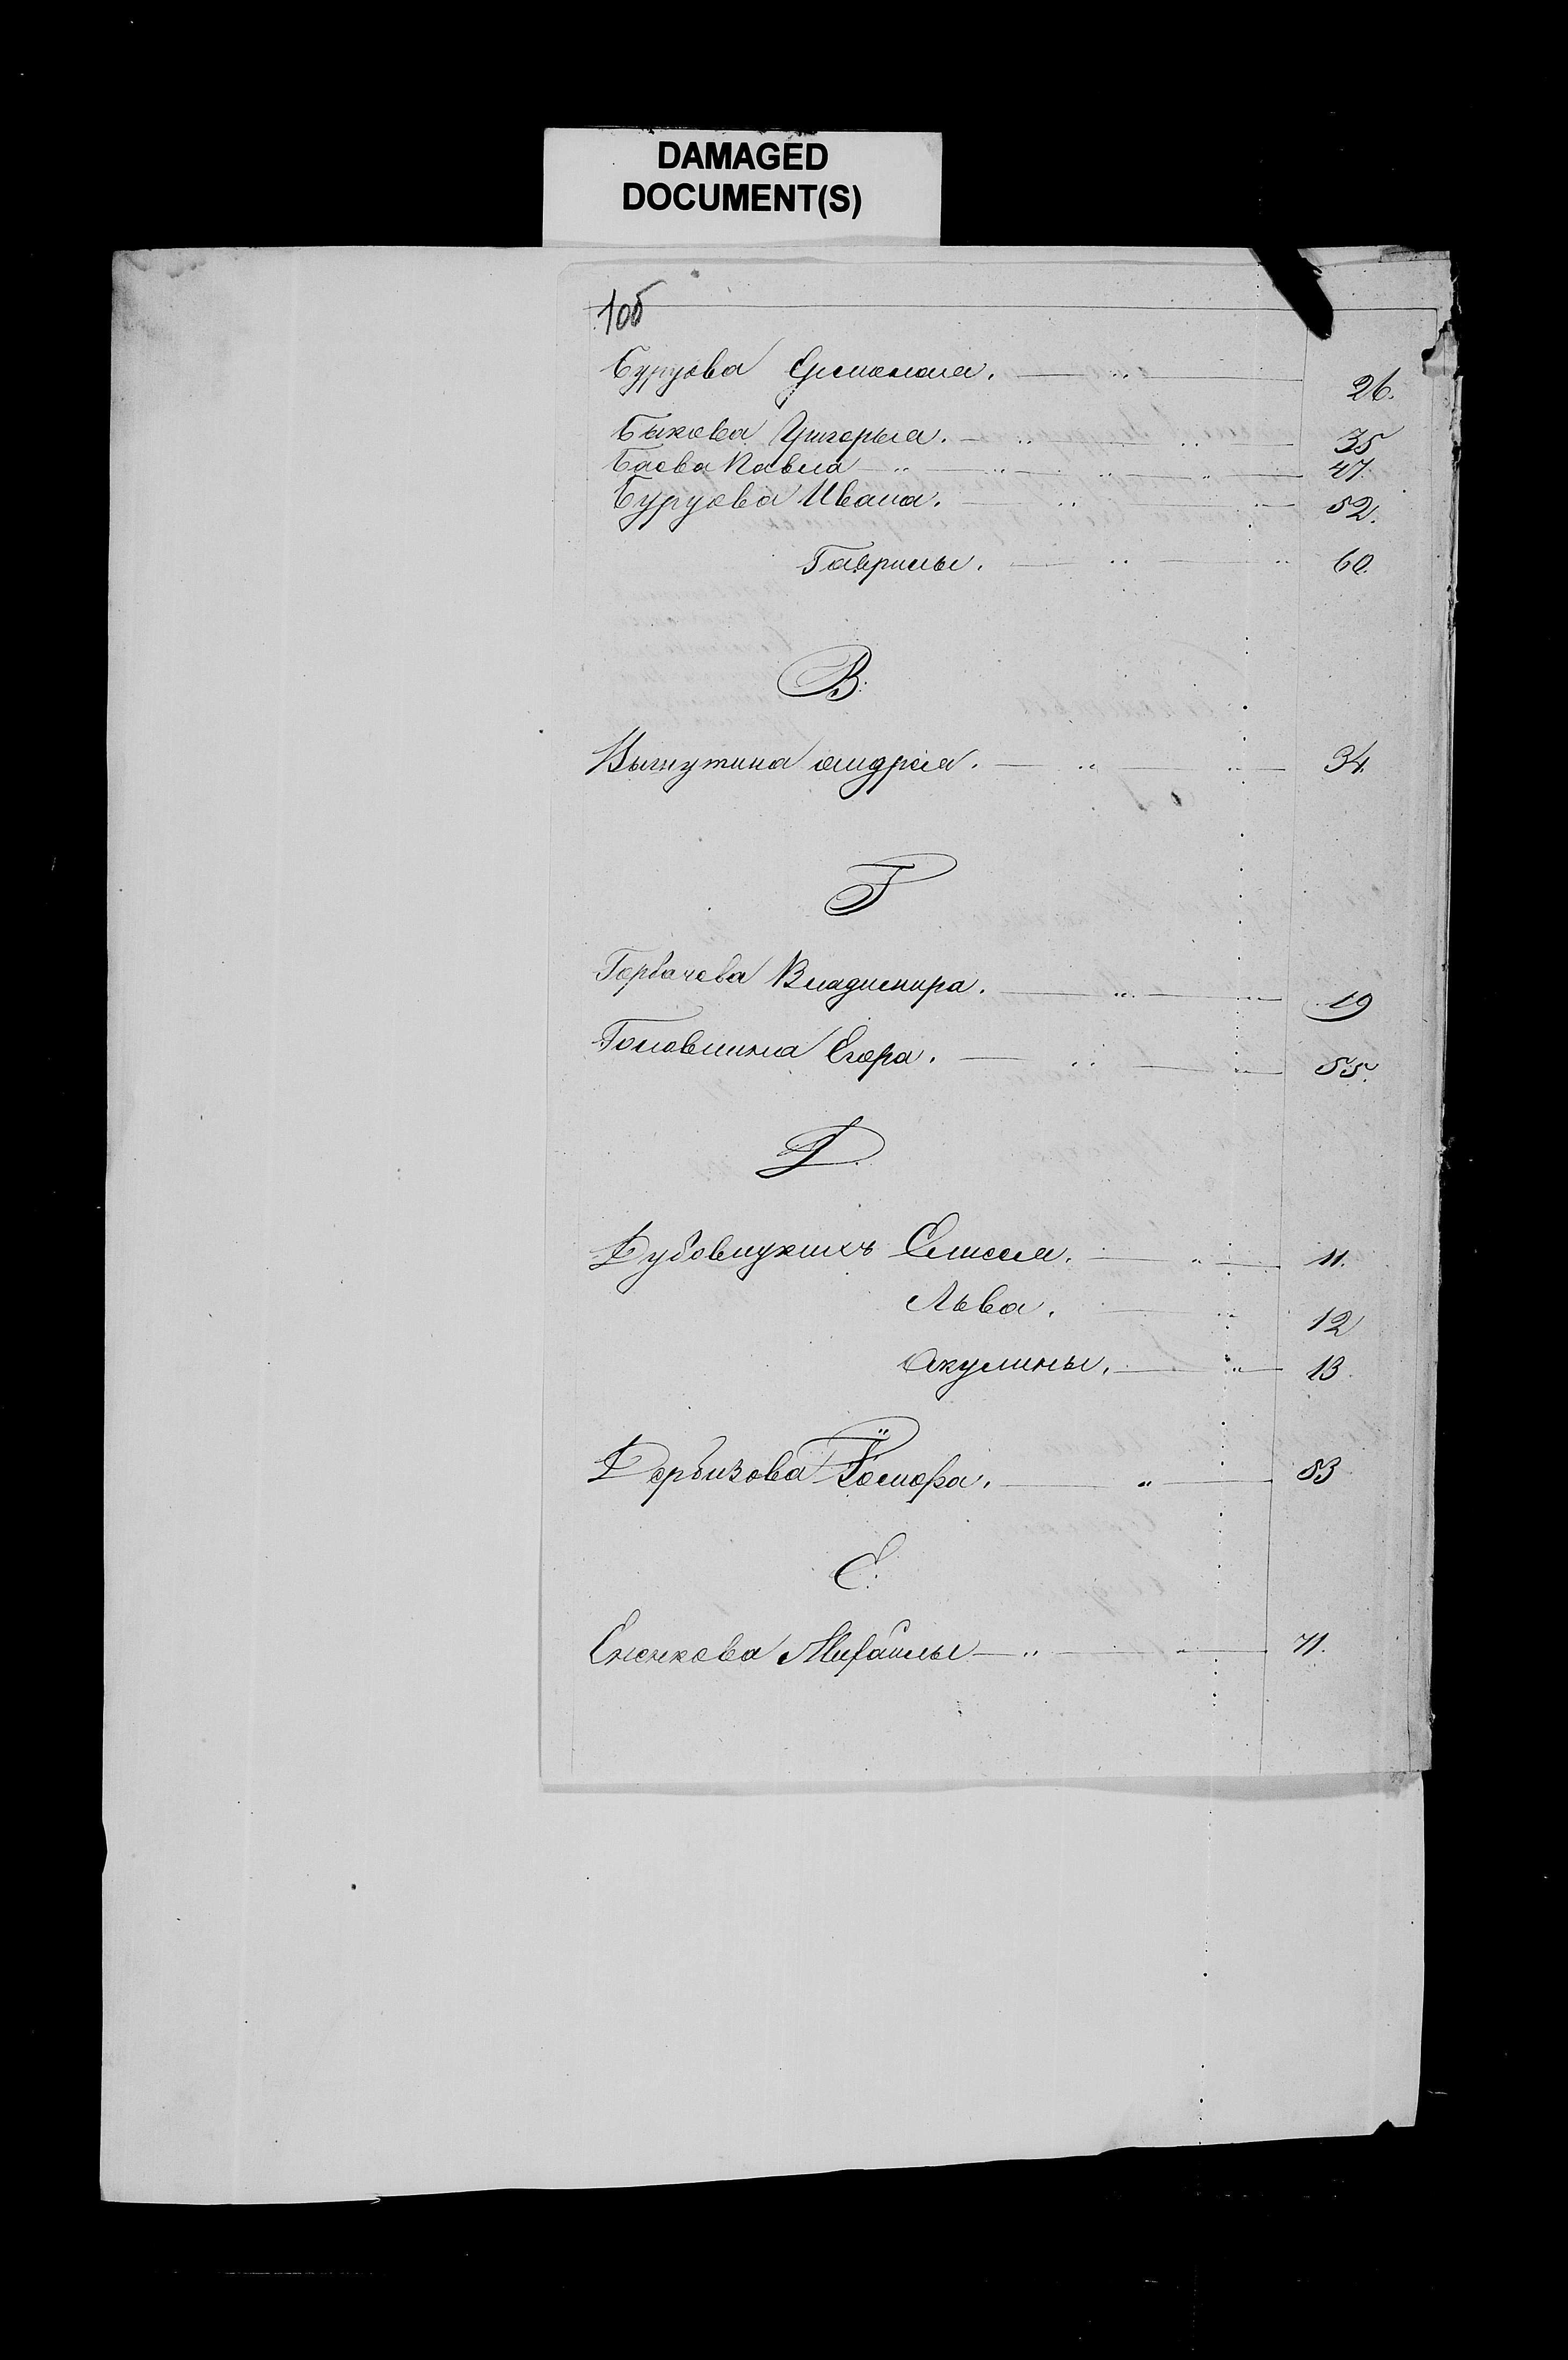 DAMAGED
DOCUMENT(S)
10б
Бурцева Ермолая. 26.
Быкова Григорья. 35
Баева Павла 47.
Бурцева Ивана. 52.
Гаврилы. 60.
В.
Выгнутина андрея. 34.
Г
Горбачева Владимира. 19
Головнина Егора. 55.
Д.
Дубовицкихъ Елисея. 11.
Льва. 12
Акулины. 13.
Дербизова 53
Е.
Михайлы 71.